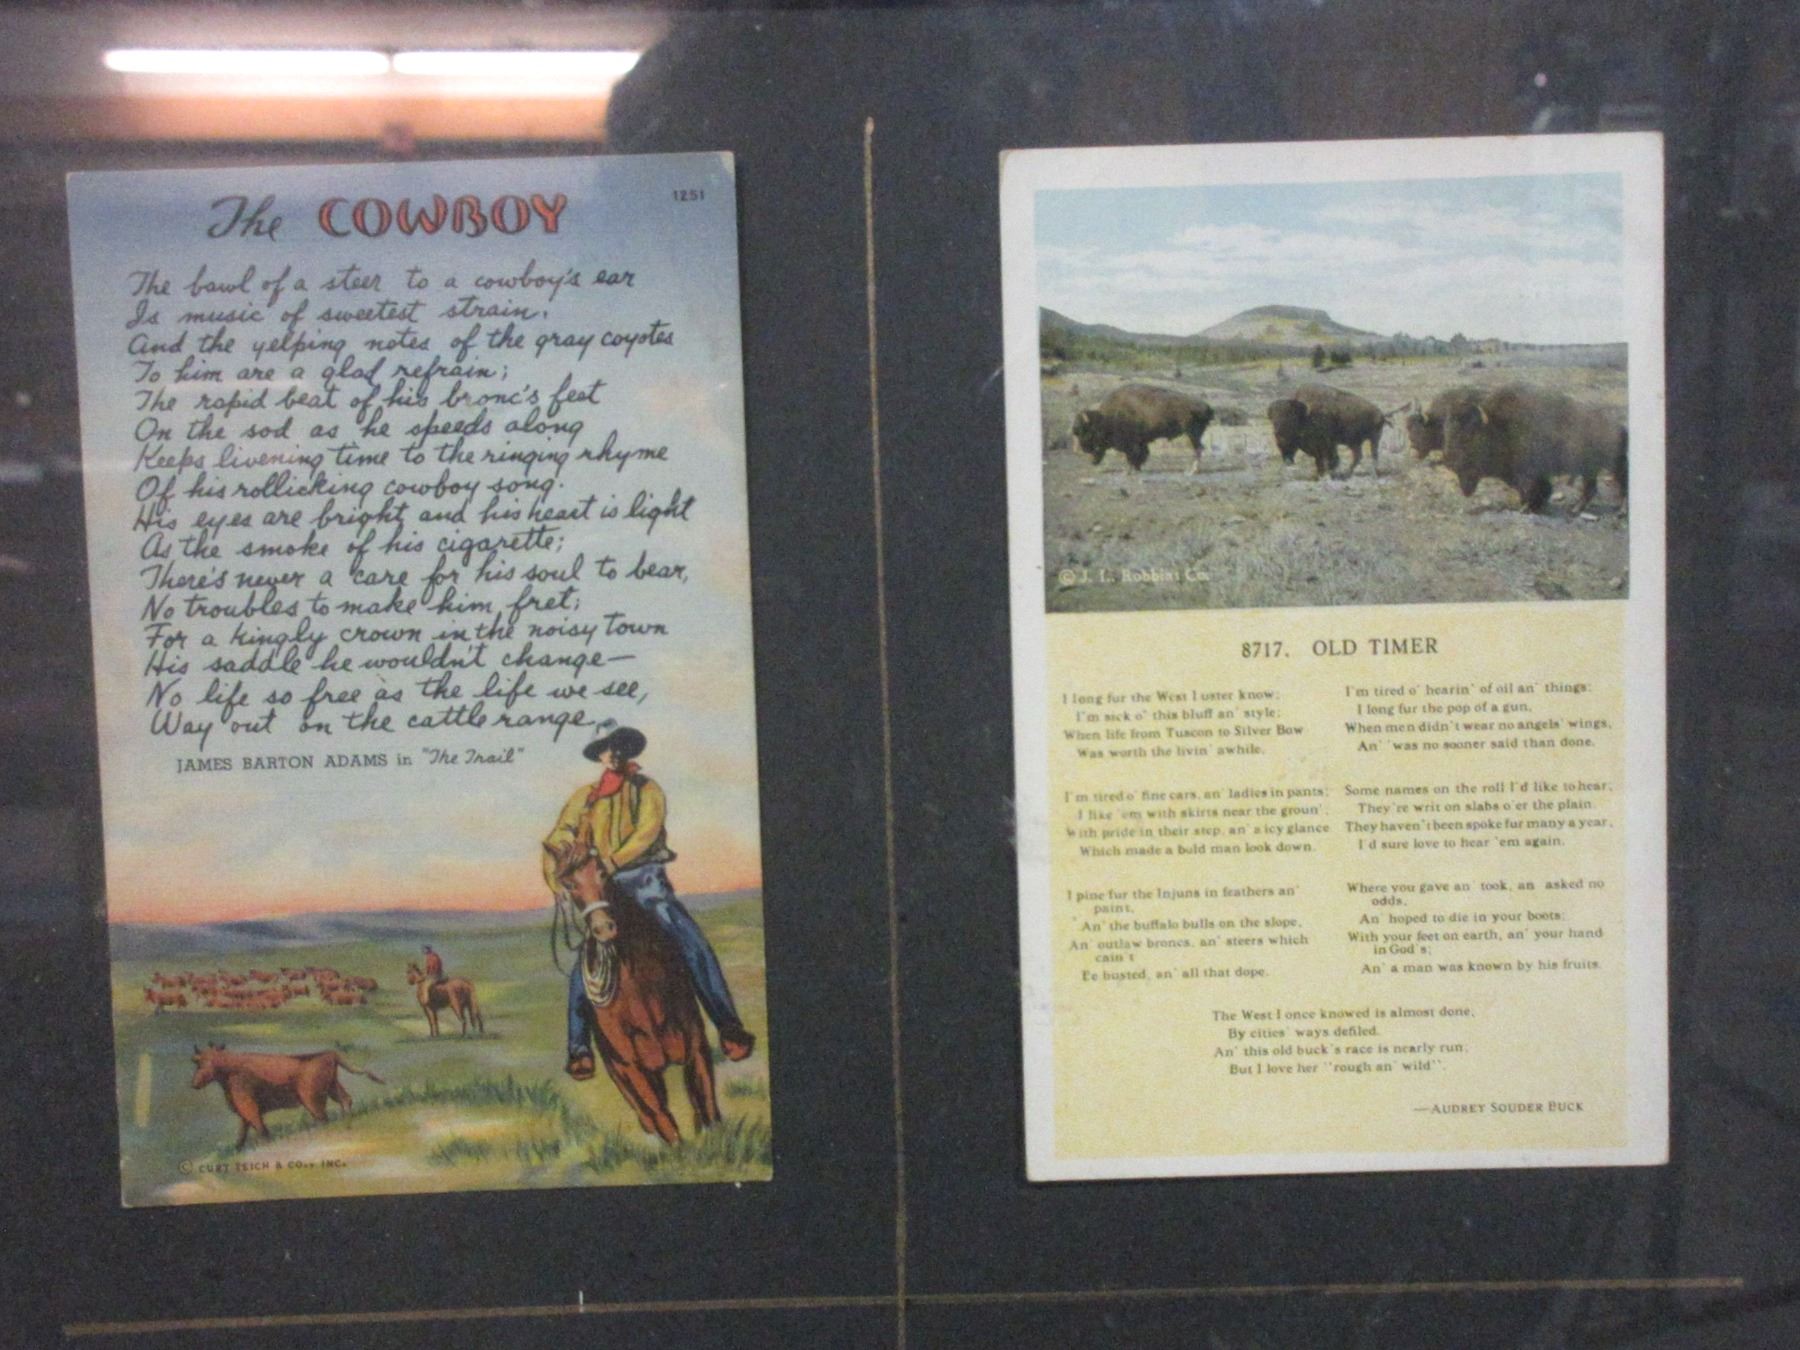 The COWBOY
1251
The bawl of a steer to a cowboy's ear
Is music of sweetest strain,
And the yelping notes of the gray coyotes
To him are a glad refrain;
The rapid beat of his bronc's feet
On the sod as he speeds along
Keeps livening time to the ringing rhyme
Of his rollicking cowboy song.
His eyes are bright and his heart is light
As the smoke of his cigarette;
There's never a care for his soul to bear,
No troubles to make him fret;
For a kingly crown in the noisy town
His saddle he wouldn't change—
No life so free as the life we see,
Way out on the cattle range.
JAMES BARTON ADAMS in "The Trail"
© CURT TEICH & CO., INC.
© J. L. Robbins Co.
8717. OLD TIMER
I long fur the West I uster know;
I'm sick o' this bluff an' style;
When life from Tuscon to Silver Bow
Was worth the livin' awhile.
I'm tired o' fine cars, an' ladies in pants;
I like 'em with skirts near the groun';
With pride in their step, an' a icy glance
Which made a bold man look down.
I pine fur the Injuns in feathers an'
paint,
An' the buffalo bulls on the slope,
An' outlaw broncs, an' steers which
cain't
Be busted, an' all that dope.
I'm tired o' hearin' of oil an' things;
I long fur the pop of a gun,
When men didn't wear no angels' wings,
An' 'twas no sooner said than done.
Some names on the roll I'd like to hear;
They're writ on slabs o'er the plain.
They haven't been spoke fur many a year,
I'd sure love to hear 'em again.
Where you gave an' took, an' asked no
odds,
An' hoped to die in your boots;
With your feet on earth, an' your hand
in God's;
An' a man was known by his fruits.
The West I once knowed is almost done,
By cities' ways defiled.
An' this old buck's race is nearly run;
But I love her "rough an' wild".
—AUDREY SOUDER BUCK